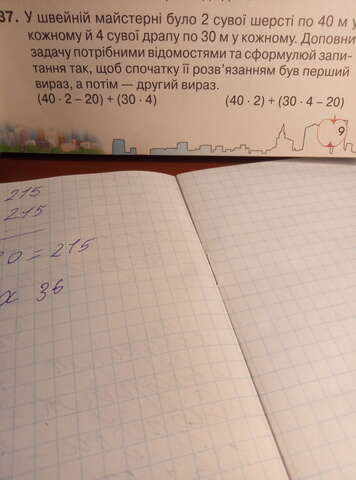 37. У швейній майстерні було 2 сувої шерсті по 40 м у
кожному й 4 сувої драпу по 30 м у кожному. Доповни
задачу потрібними відомостями та сформулюй запи-
тання так, щоб спочатку її розв'язанням був перший
вираз, а потім — другий вираз.
(40 · 2 – 20) + (30 · 4) (40 · 2) + (30 · 4 – 20)
9
215
215
0 = 215
х 36